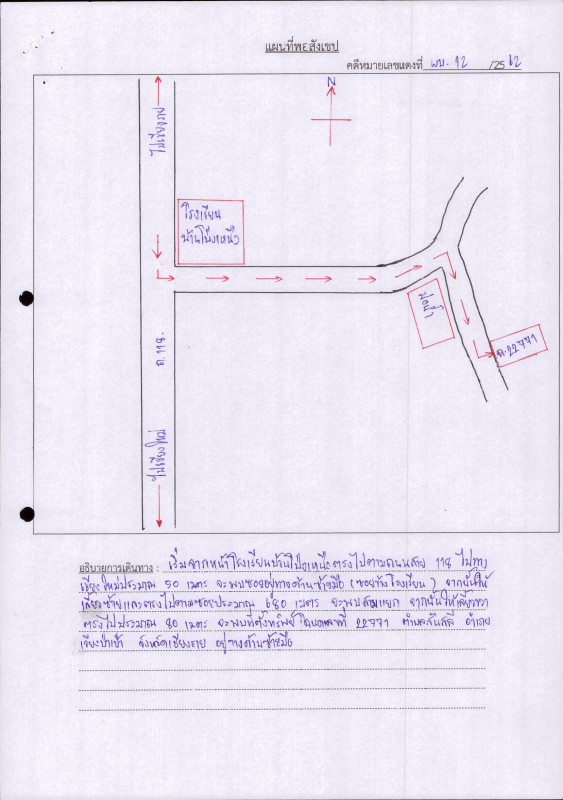 แผนที่พอสังเขป
คดีหมายเลขแดงที่ ผบ. 12 /2562
N
ไปเชียงราย
โรงเรียน
บ้านโป่งเหนือ
บ่อน้ำ
ฉ.22771
ถ.118.
ไปเชียงใหม่
อธิบายการเดินทาง : เริ่มจากหน้าโรงเรียนบ้านโป่งเหนือตรงไปตามถนนสาย 118 ไปทาง
เชียงใหม่ประมาณ 50 เมตร จะพบซอยอยู่ทางด้านซ้ายมือ (ซอยข้างโรงเรียน) จากนั้นให้
เลี้ยวซ้ายแล้วตรงไปตามซอยประมาณ 680 เมตร จะพบสามแยก จากนั้นให้เลี้ยวขวา
ตรงไปประมาณ 80 เมตร จะพบที่ตั้งทรัพย์ โฉนดเลขที่ 22771 ตำบลสันสลี อำเภอ
เวียงป่าเป้า จังหวัดเชียงราย อยู่ทางด้านซ้ายมือ